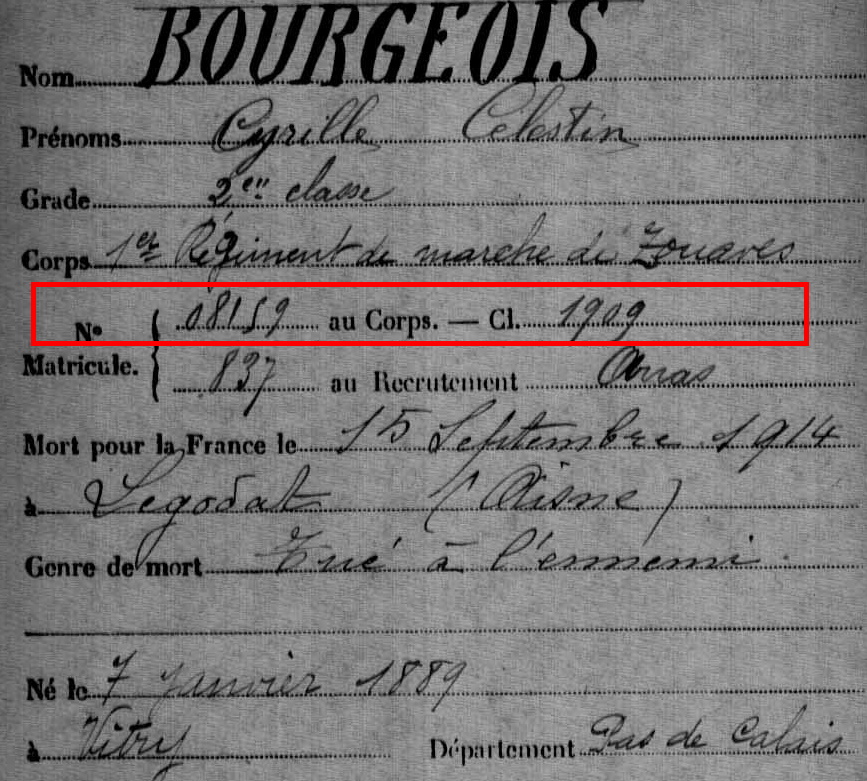 Nom BOURGEOIS
Prénoms Cyrille Célestin
Grade 2em classe
Corps 1er Régiment de marche de Zouaves
No 08159 au Corps. — Cl. 1909
Matricule. 837 au Recrutement Arras
Mort pour la France le 15 Septembre 1914
à Legodat (Aisne)
Genre de mort Tué à l'ennemi.
Né le 7 Janvier 1889
à Vitry Département Pas de Calais